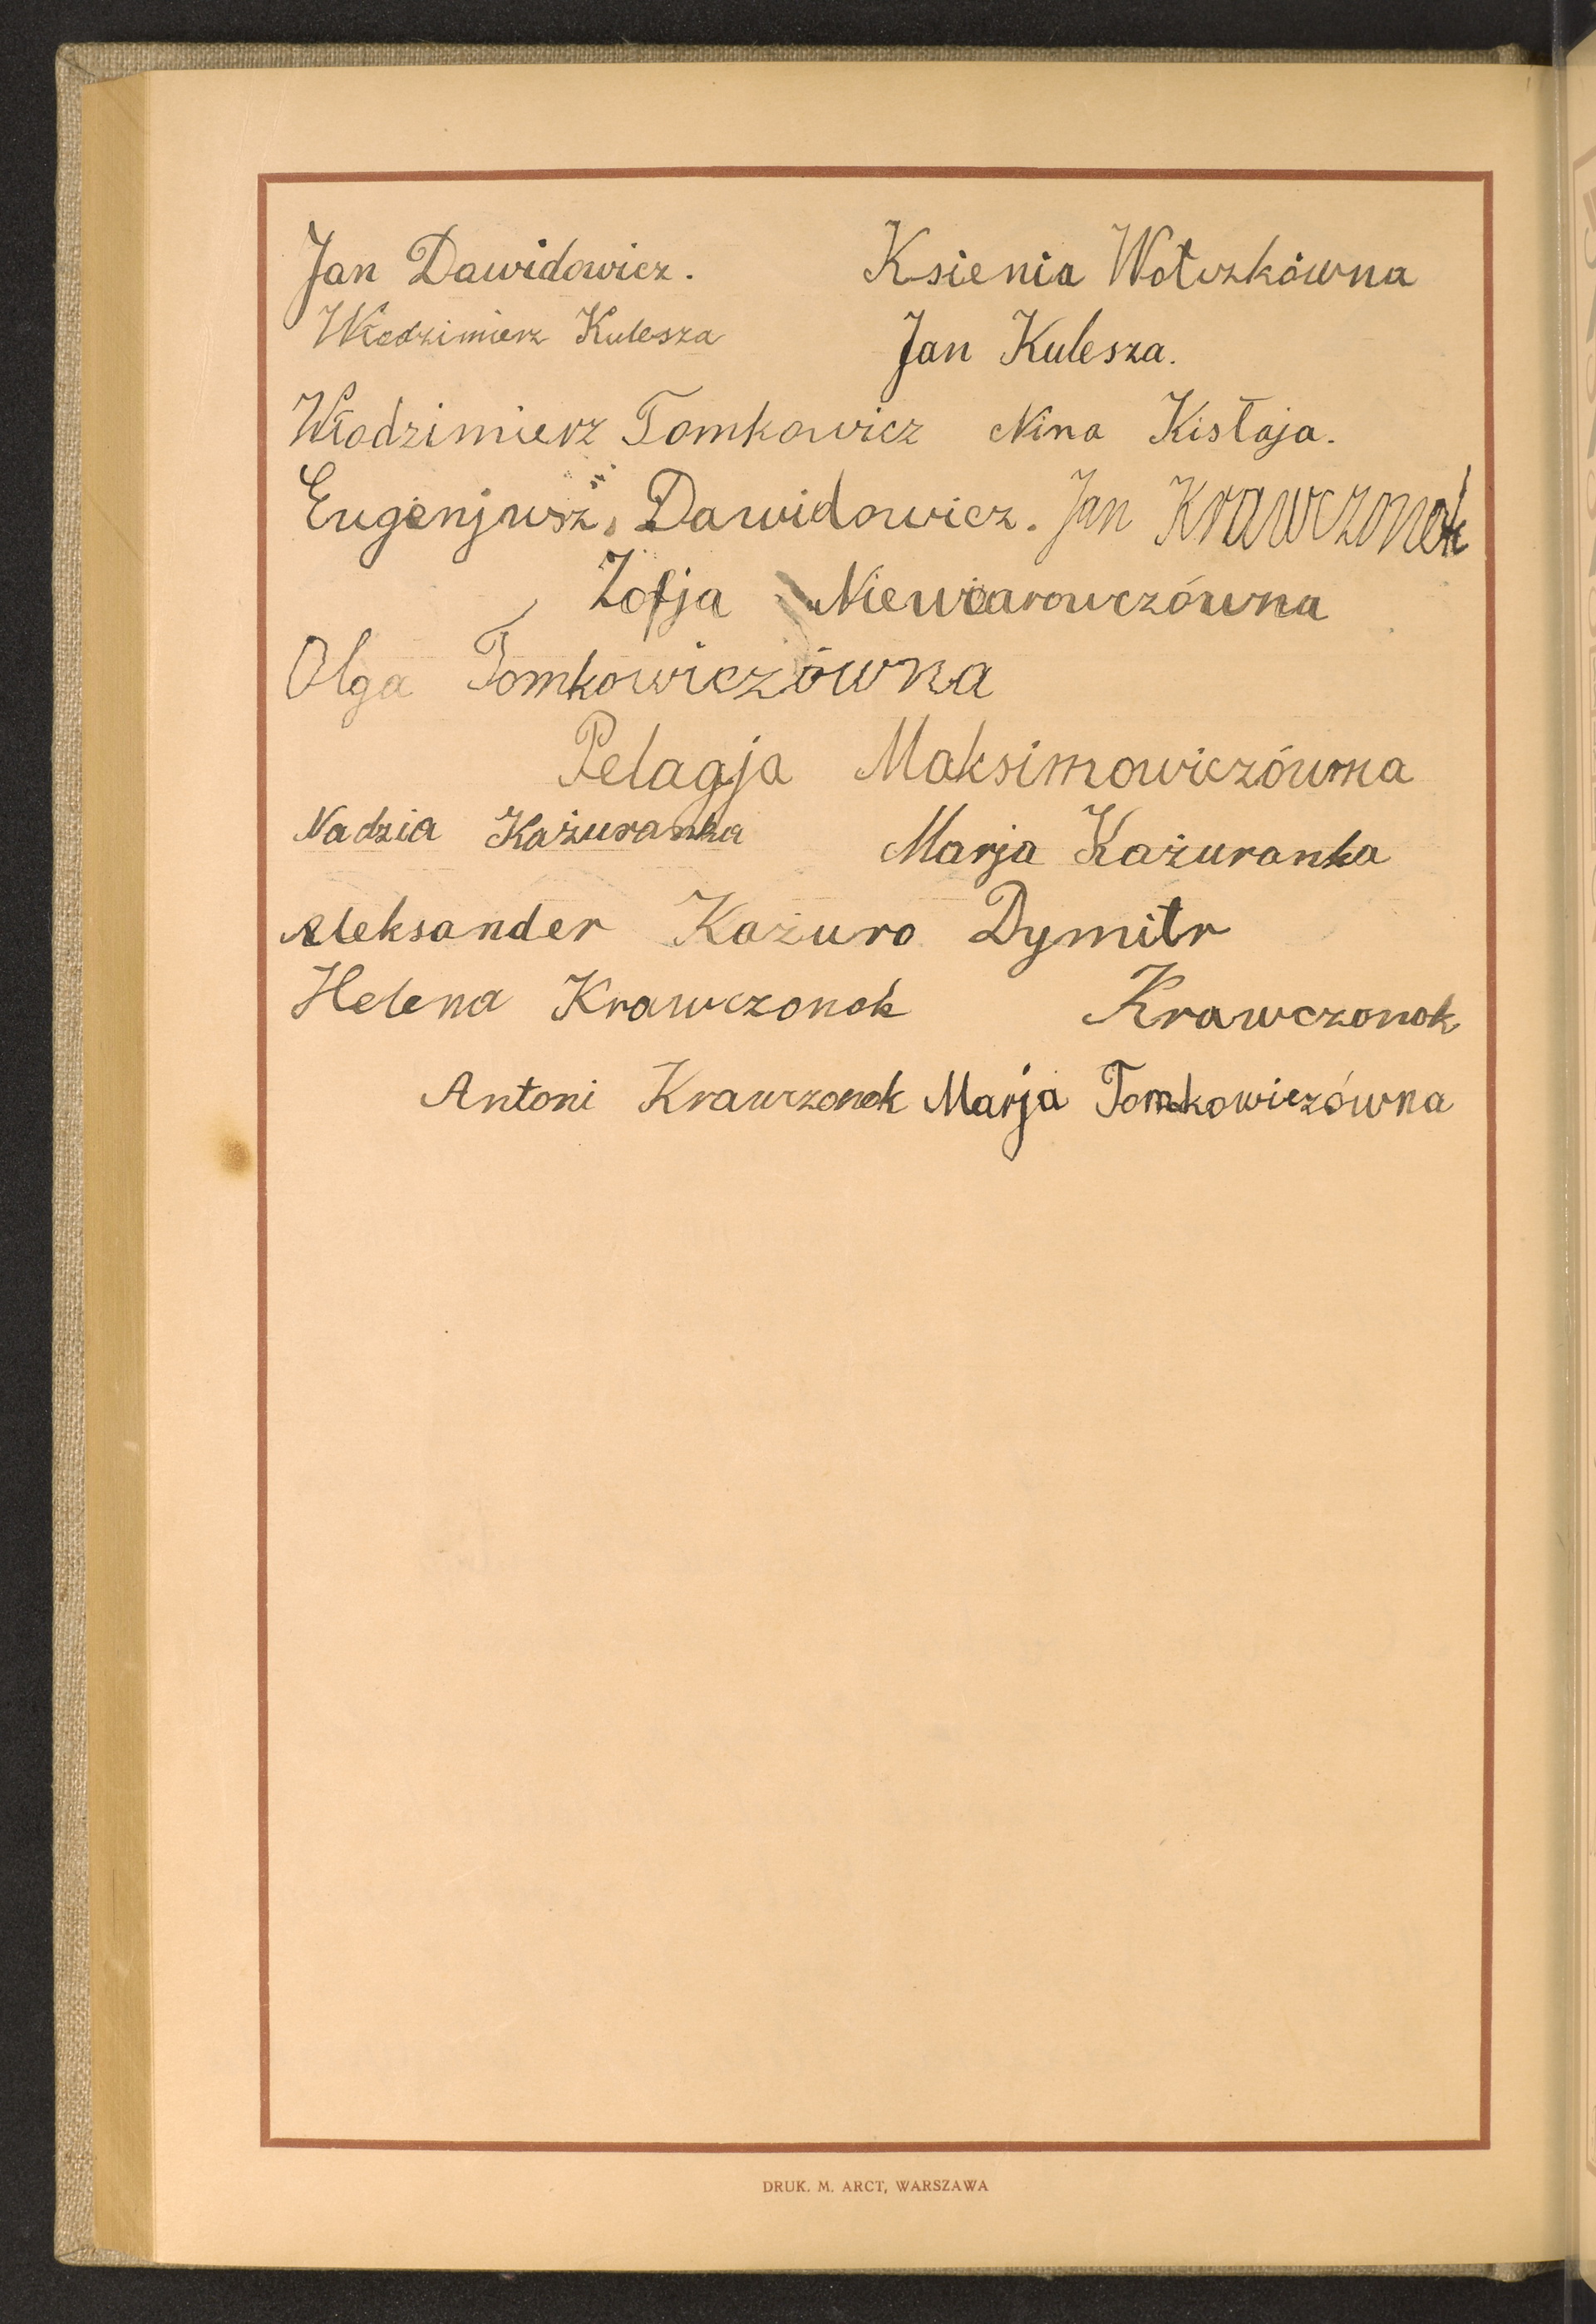 Jan Dawidowicz. Ksienia Wołczkówna
Włodzimierz Kulesza Jan Kulesza.
Włodzimierz Tomkowicz Nina Kisłaja.
Eugenjusz Dawidowicz. Jan Krawczonok
Zofja Niewiarowczówna
Olga Tomkowiczówna
Pelagja Maksimowiczówna
Nadzia Każuranka Marja Każuranka
Aleksander Każuro Dymitr
Helena Krawczonok Krawczonok
Antoni Krawczonok Marja Tomkowiczówna
DRUK. M. ARCT, WARSZAWA